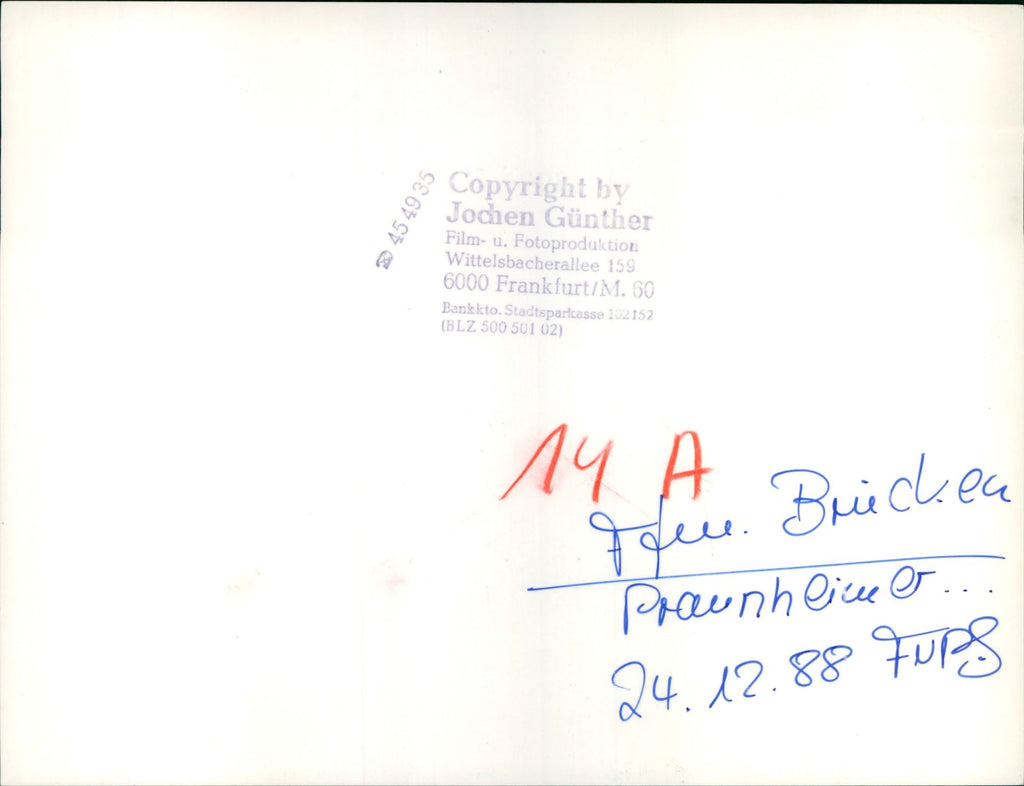 ☎ 454935
Copyright by
Jochen Günther
Film- u. Fotoproduktion
Wittelsbacherallee 159
6000 Frankfurt/M. 60
Bankkto. Stadtsparkasse 102152
(BLZ 500 501 02)
14 A
Ffm. Brücken
Praunheimer...
24.12.88 FNP